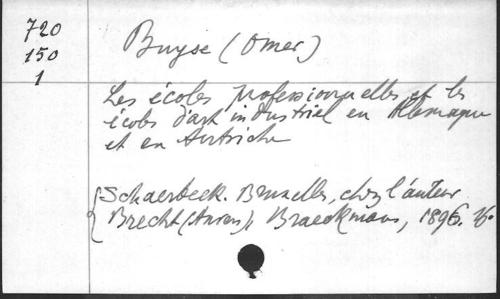 720
150
1
Buyse (Omer)
Les écoles professionnelles et les
écoles d'art industriel en Allemagne
et en Autriche
Schaerbeek. Bruxelles, chez l'auteur
Brecht (Anvers), Braeckmans, 1896.